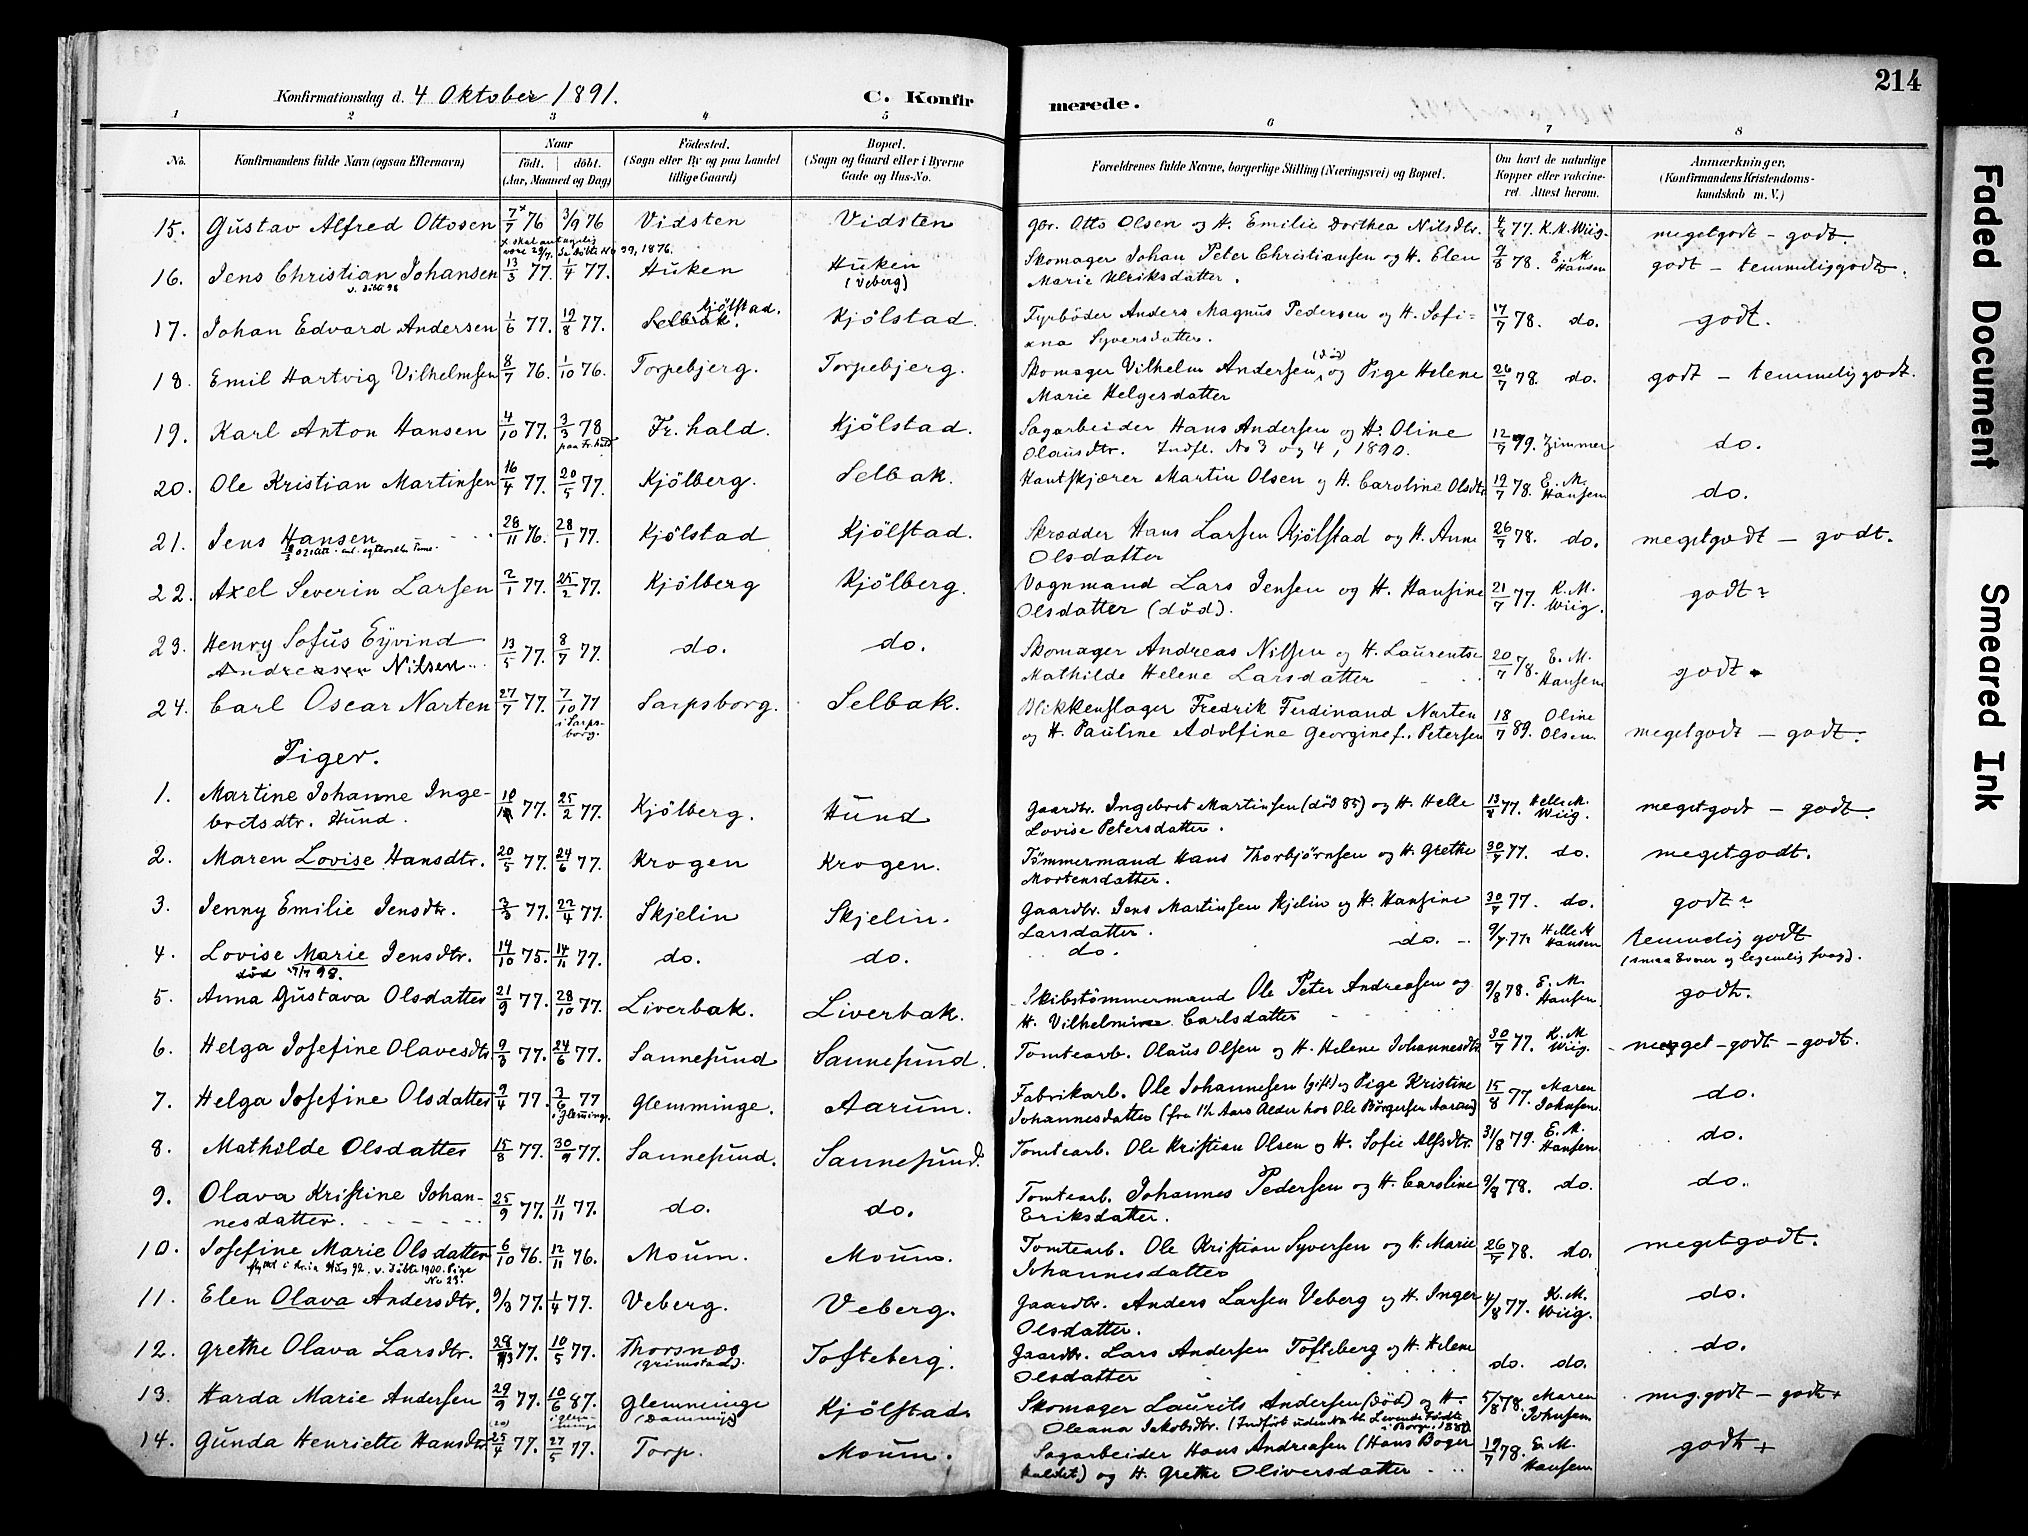 214
Konfirmationsdag d. 4 Oktober 1891.
C. Konfirmerede.
1 2 3 4 5 6 7 8
No.
Konfirmandens fulde Navn (ogsaa Efternavn)
Naar
født. døbt.
(Aar, Maaned og Dag)
Fødested.
(Sogn eller By og paa Landet
tillige Gaard)
Bopæl.
(Sogn og Gaard eller i Byerne
Gade og Hus-No.
Forældrenes fulde Navne, borgerlige Stilling (Næringsvei) og Bopæl.
Om havt de naturlige
Kopper eller vaccine-
ret. Attest herom.
Anmærkninger,
(Konfirmandens Kristendoms-
kundskab m. V.)
15. Gustav Alfred Ottosen 7/7 76 3/9 76 Vidsten Vidsten Gbr. Otto Olsen og H. Emilie Dorthea Nilsdtr. 4/8 77. K. M. Wiig. megetgodt - godt.
16. Jens Christian Johansen 13/3 77. 1/4 77. Huken Huken (Veberg) Skomager Johan Peter Christiansen og H. Elen
Marie Ulriksdatter. 9/8 78. E. M. Hansen godt - temmeliggodt.
17. Johan Edvard Andersen 1/6 77. 12/8 77. Selbak. Kjölstad. Kjölstad. Fyrböder Anders Magnus Pedersen og H. Sofi=
ana Syversdatter. 17/7 78. do. godt.
18. Emil Hartvig Vilhelmsen 8/7 76. 1/10 76. Torpebjerg. Torpebjerg. Skomager Vilhelm Andersen og Pige Helene
Marie Helgesdatter 26/7 78. do. godt - temmeliggodt.
19. Karl Anton Hansen 4/10 77. 3/3 78 Fr. hald. Kjölstad. Sagarbeider Hans Andersen og H. Oline
Olausdtr. Indfl. No 3 og 4, 1890. 12/9 79. Zimmer do.
20. Ole Kristian Martinsen 16/4 77. 20/5 77. Kjölberg. Selbak. Kantskjærer Martin Olsen og H. Caroline Olsdtr. 19/7 78. E. M. Hansen do.
21. Jens Hansen 28/11 76. 28/1 77. Kjölstad Kjölstad. Skrædder Hans Larsen Kjölstad og H. Anne
Olsdatter 26/7 78. do. megetgodt - godt.
22. Axel Severin Larsen 2/1 77. 25/2 77. Kjölberg Kjölberg. Vognmand Lars Jensen og H. Hansine
Olsdatter (död). 21/7 77. K. M. Wiig. godt
23. Henry Sofus Eyvind
Andreasen Nilsen 13/5 77. 8/7 77. do. do. Skomager Andreas Nilsen og H. Laurentse
Mathilde Helene Larsdatter 20/7 78. E. M. Hansen godt.
24. Carl Oscar Narten 27/7 77. 7/10 77 i Sarpsborg. Sarpsborg. Selbak. Blikkenslager Fredrik Ferdinand Narten
og H. Pauline Adolfine Georgine f. Petersen 18/7 89. Oline Olsen. megetgodt - godt.
Piger.
1. Martine Johanne Inge-
bretsdtr. Hund. 10/ 77. 25/2 77. Kjölberg. Hund Gaardbr. Ingebret Martinsen (död 85) og H. Helle
Lovise Petersdatter. 13/8 77. Helle M. Wiig. megetgodt - godt.
2. Maren Lovise Hansdtr. 20/5 77. 24/6 77. Krogen Krogen. Tömmermand Hans Thorbjörnsen og H. Grethe
Mortensdatter. 30/7 77. do. megetgodt.
3. Jenny Emilie Jensdtr. 3/3 77. 22/4 77. Skjelin Skjelin. Gaardbr. Jens Martinsen Skjelin og H. Hansine
Larsdatter. 30/7 77. do. godt
4. Lovise Marie Jensdtr. 14/10 75. 14/11 77. do. do. do. do. 9/7 77. Helle M Hansen temmelig godt
(smaa Evner og legemlig svag).
död 98.
5. Anna Gustava Olsdatter 21/9 77. 28/10 77. Liverbak. Liverbak. Skibstömmermand Ole Peter Andreasen og
H. Vilhelmine Carlsdatter 9/8 78. E. M. Hansen godt.
6. Helga Josefine Olavesdtr. 9/3 77. 24/6 77. Sannesund Sannesund. Tomtearb. Olaus Olsen og H. Helene Johannesdtr. 30/7 77. K. M Wiig. meget-godt - godt.
7. Helga Josefine Olsdatter 2/4 77. 3/6 77 i Glemminge. Glemminge. Aarum. Fabrikarb. Ole Johannesen (gift) og Pige Kristine
Johannesdatter (fra 1½ Aars Alder hos Ole Börgersen Aarum) 15/8 77. Maren Johnsen. do.
8. Mathilde Olsdatter 15/8 77. 30/9 77. Sannesund. Sannesund. Tomtearb. Ole Kristian Olsen og H. Sofie Alfsdtr. 31/8 79. E. M. Hansen. do.
9. Olava Kristine Johan-
nesdatter. 25/9 77. 11/11 77. do. do. Tomtearb. Johannes Pedersen og H. Caroline
Eriksdatter. 9/8 78. do. do.
10. Josefine Marie Olsdatter 6/10 76. 12/11 76. Moum. Moum. Tomtearb. Ole Kristian Syversen og H. Marie
Johannesdatter 26/7 78. do. megetgodt.
11. Elen Olava Andersdtr. 9/3 77. 1/4 77. Veberg. Veberg. Gaardbr. Anders Larsen Veberg og H. Inger
Olsdatter. 4/8 77. K. M. Wiig. do.
12. Grethe Olava Larsdtr. 28/3 77. 10/5 77. Thorsnæs (Grimstad). Tofteberg. Gaardbr. Lars Andersen Tofteberg og H. Helene
Olsdatter do. do. do.
13. Harda Marie Andersen 29/9 77. 10/6 87. Glemminge Kjölstad. Skomager Laurits Andersen (död) og H.
Oleana Jakobsdtr. 5/8 78. Maren Johnsen. meg.godt - godt+
14. Gunda Henriette Hansdtr. 25/4 77. 27/5 77. Torp. Moum. Sagarbeider Hans Andreasen (Hans Böger
kaldet) og H. Grethe Oliversdatter 19/7 78. E. M. Hansen godt +
Faded Document
Smeared Ink